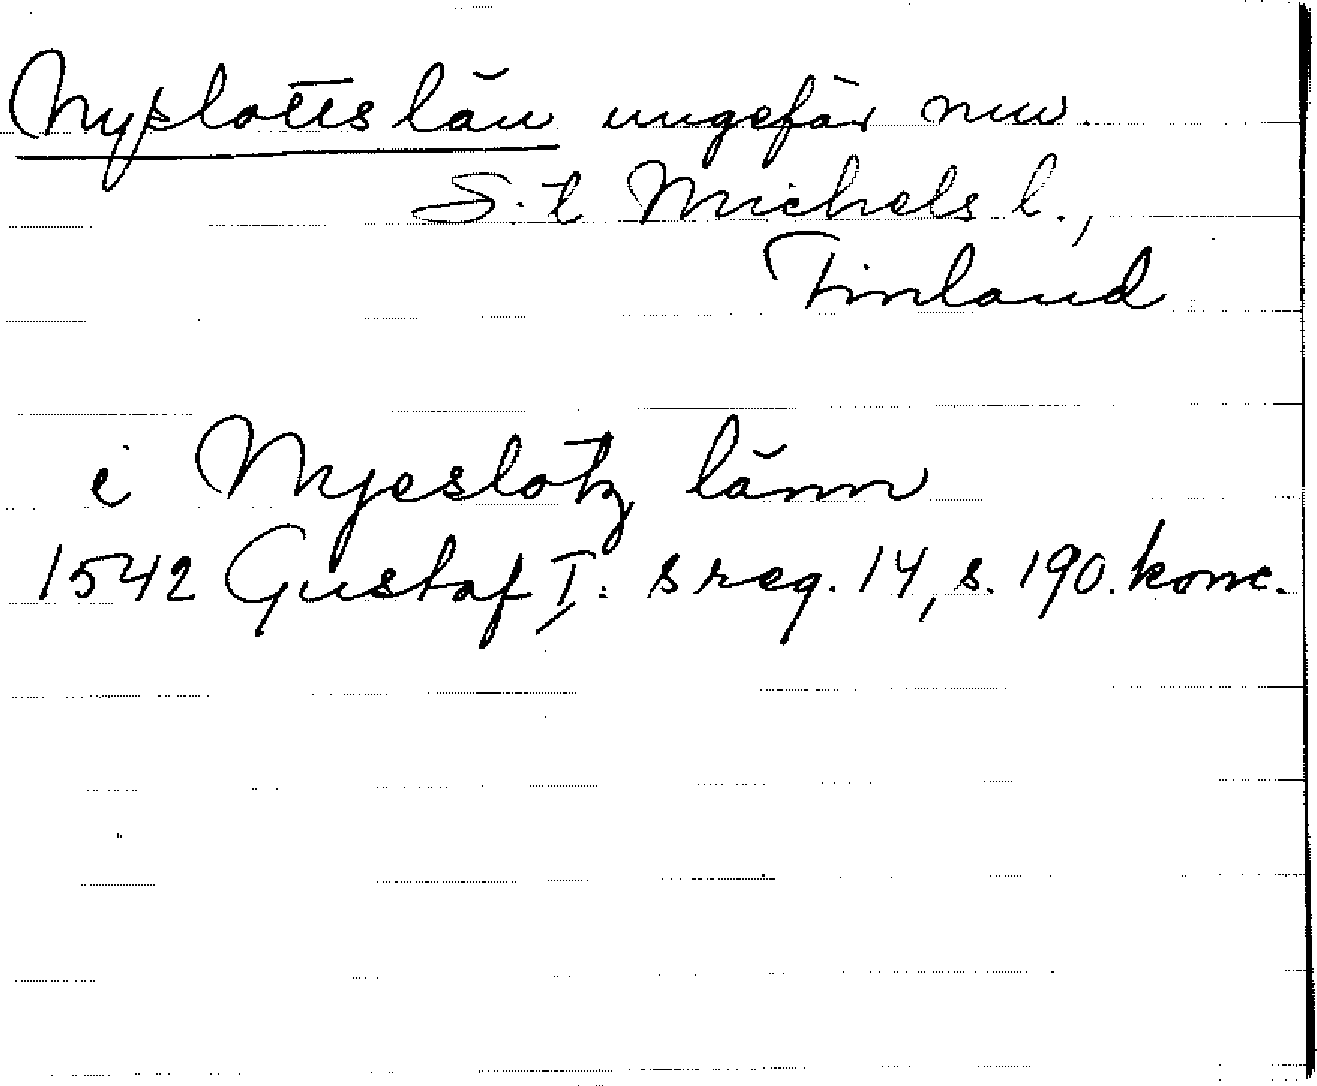 Nyslotts län ungefär nuv.
S:t Michels l.,
Finland
i Nyeslotz länn
1542 Gustaf I: s reg. 14, s. 190. konc.